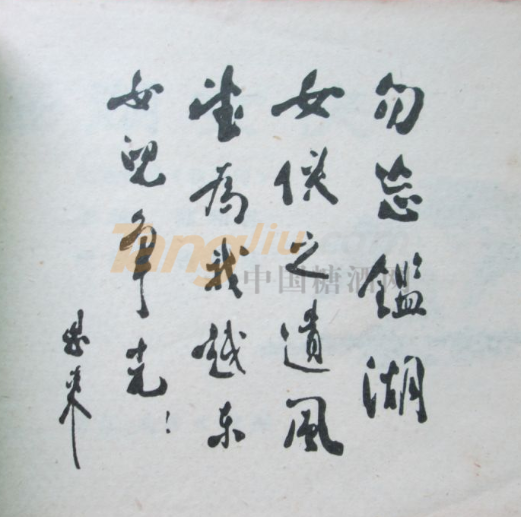 勿忘鑑湖
女俠之遺風
望為我越东
女兒争光：
恩来
Tangjiu.com
中国糖酒网